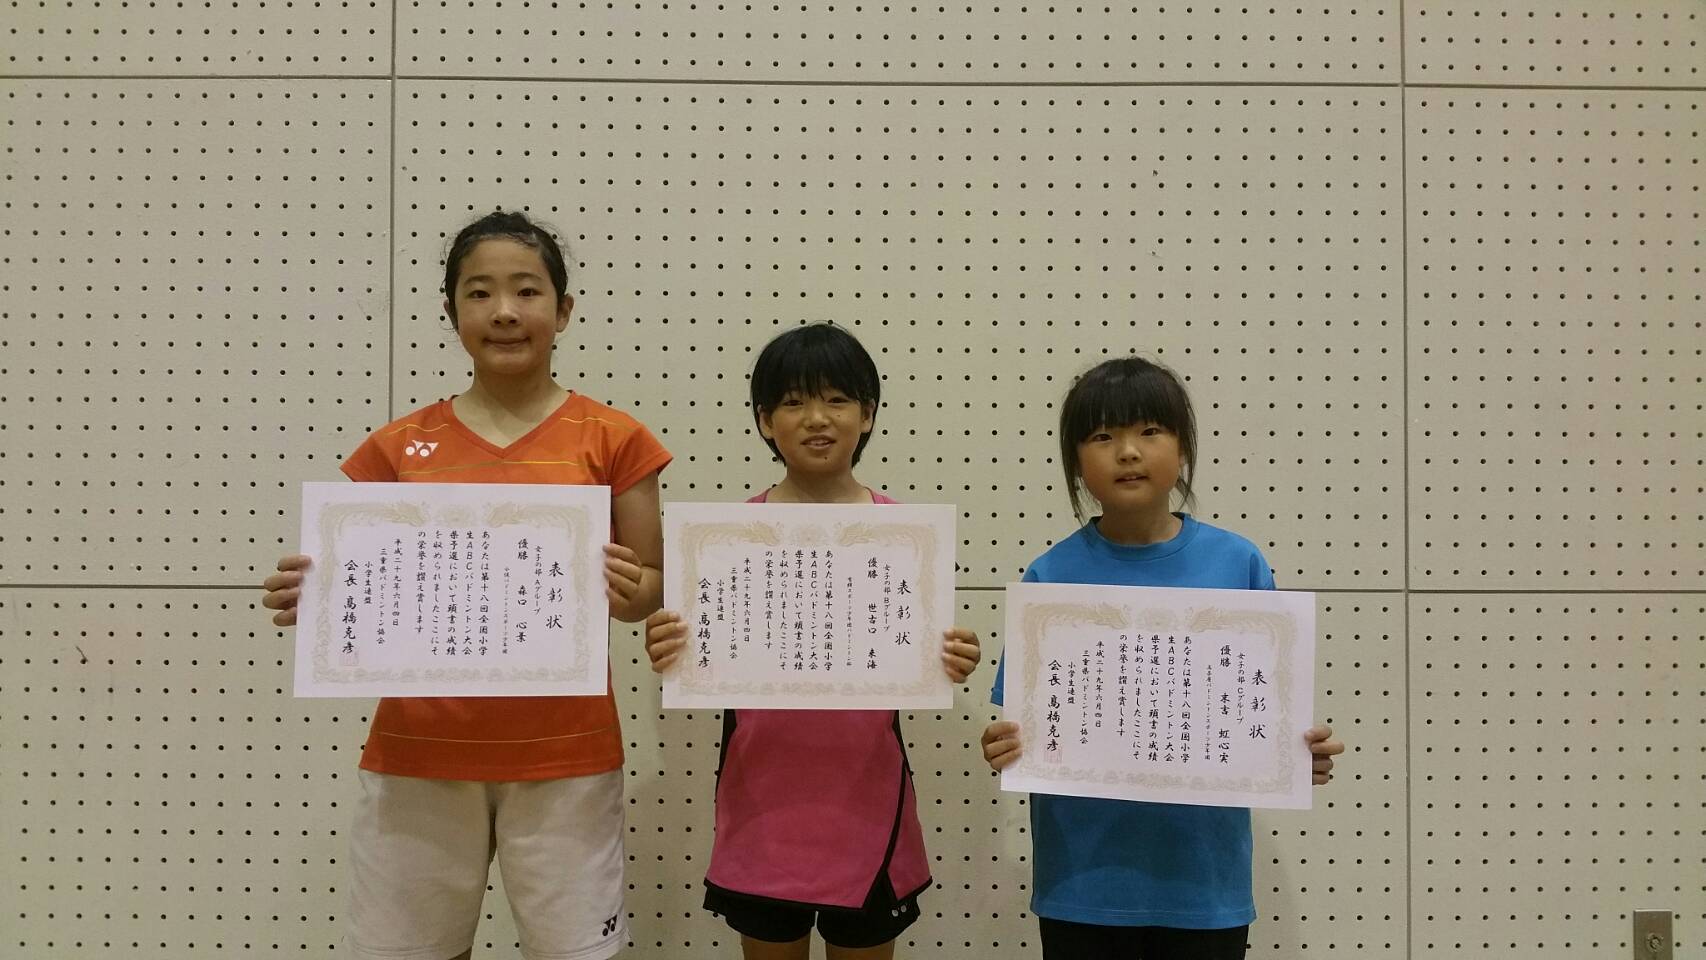 表彰状
女子の部 Aグループ
優勝 森口 心景
あなたは第十八回全国小学
生ABCバドミントン大会
県予選において頭書の成績
を収められましたここにそ
の栄誉を讃え賞します
平成二十九年六月四日
三重県バドミントン協会
小学生連盟
会長 高橋克彦
表彰状
女子の部 Bグループ
優勝 世古口 来海
あなたは第十八回全国小学
生ABCバドミントン大会
県予選において頭書の成績
を収められましたここにそ
の栄誉を讃え賞します
平成二十九年六月四日
三重県バドミントン協会
小学生連盟
会長 高橋克彦
表彰状
女子の部 Cグループ
優勝 末吉 虹心実
あなたは第十八回全国小学
生ABCバドミントン大会
県予選において頭書の成績
を収められましたここにそ
の栄誉を讃え賞します
平成二十九年六月四日
三重県バドミントン協会
小学生連盟
会長 高橋克彦